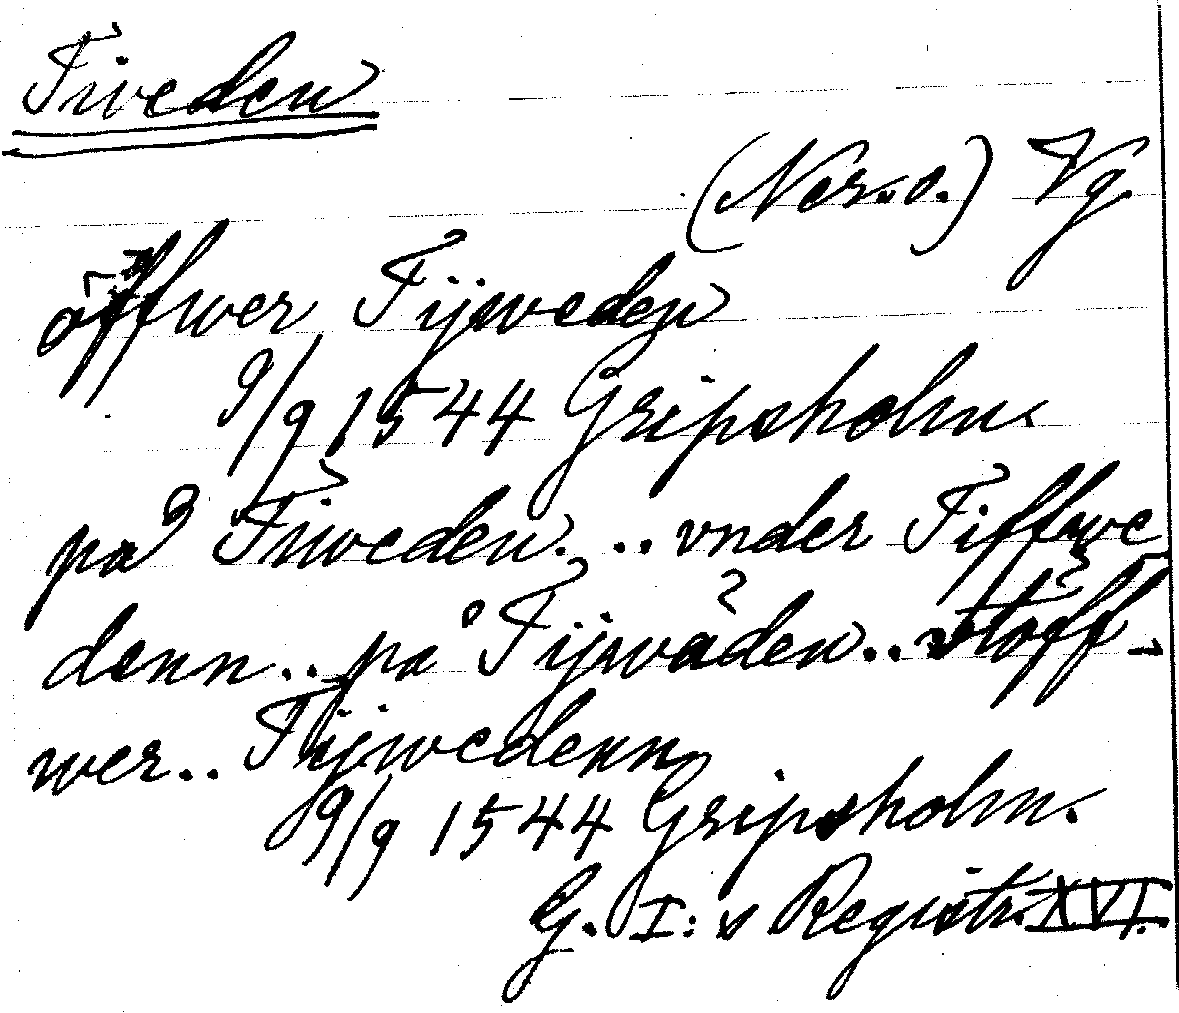 Tiveden
(Ner.o.) Vg.
öffwer Tijweden
9/9 1544 Gripsholm.
på Tiweden... vnder Tiffwe
denn.. på Tijwåden.. vtöff-
wer.. Tijwedenn
9/9 1544 Gripsholm.
G. I:s Registr. XVI.